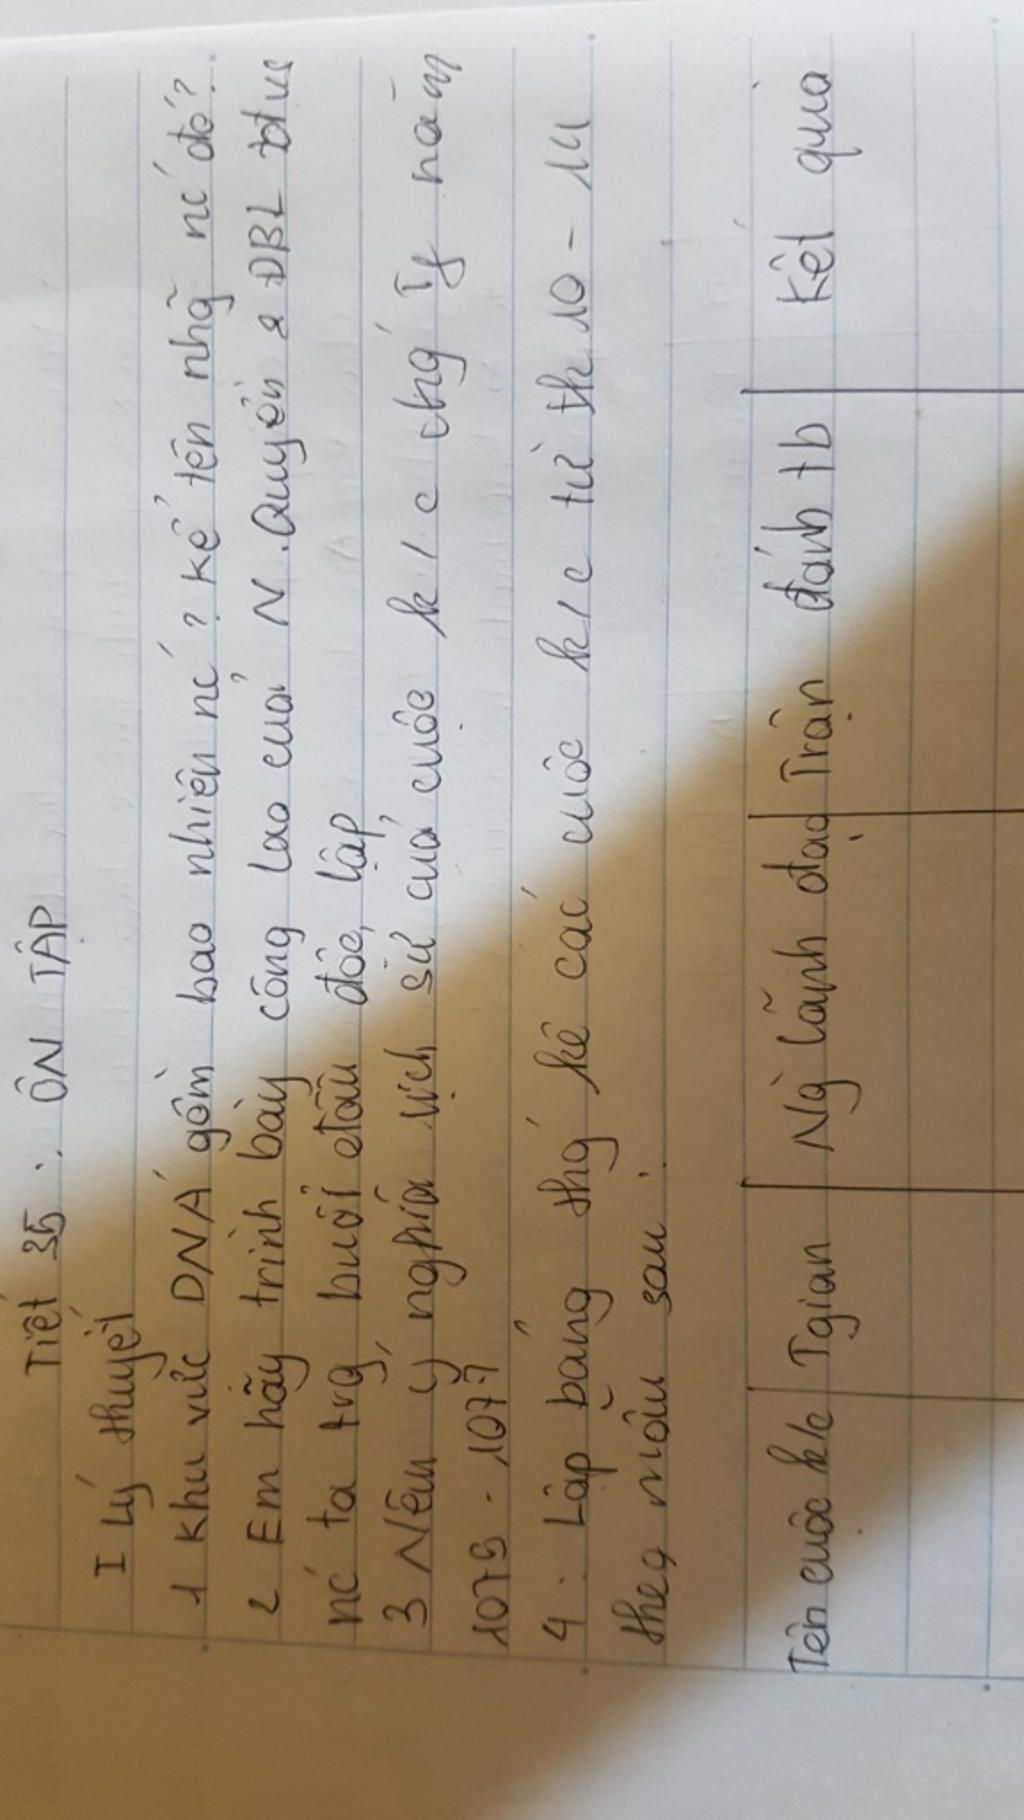 Tiết 35: ÔN TẬP
I Lý thuyết
1 Khu vực DNÁ gồm bao nhiên nć? Kể tên nhg̃ nć đó?
2 Em hãy trình bày công lao của N. Quyền & ĐBL đt vs
nć ta trg buổi đầu độc lập
3 Nêu ý nghĩa lịch sử của cuộc k/c chǵ Tg năm
1075 - 1077
4. Lập bảng thǵ kê các cuộc k/c từ tk 10 - 14
theo mẫu sau:
Tên cuộc k/c Tgian Ng̀ lãnh đạo Trận đánh tb Kết quả